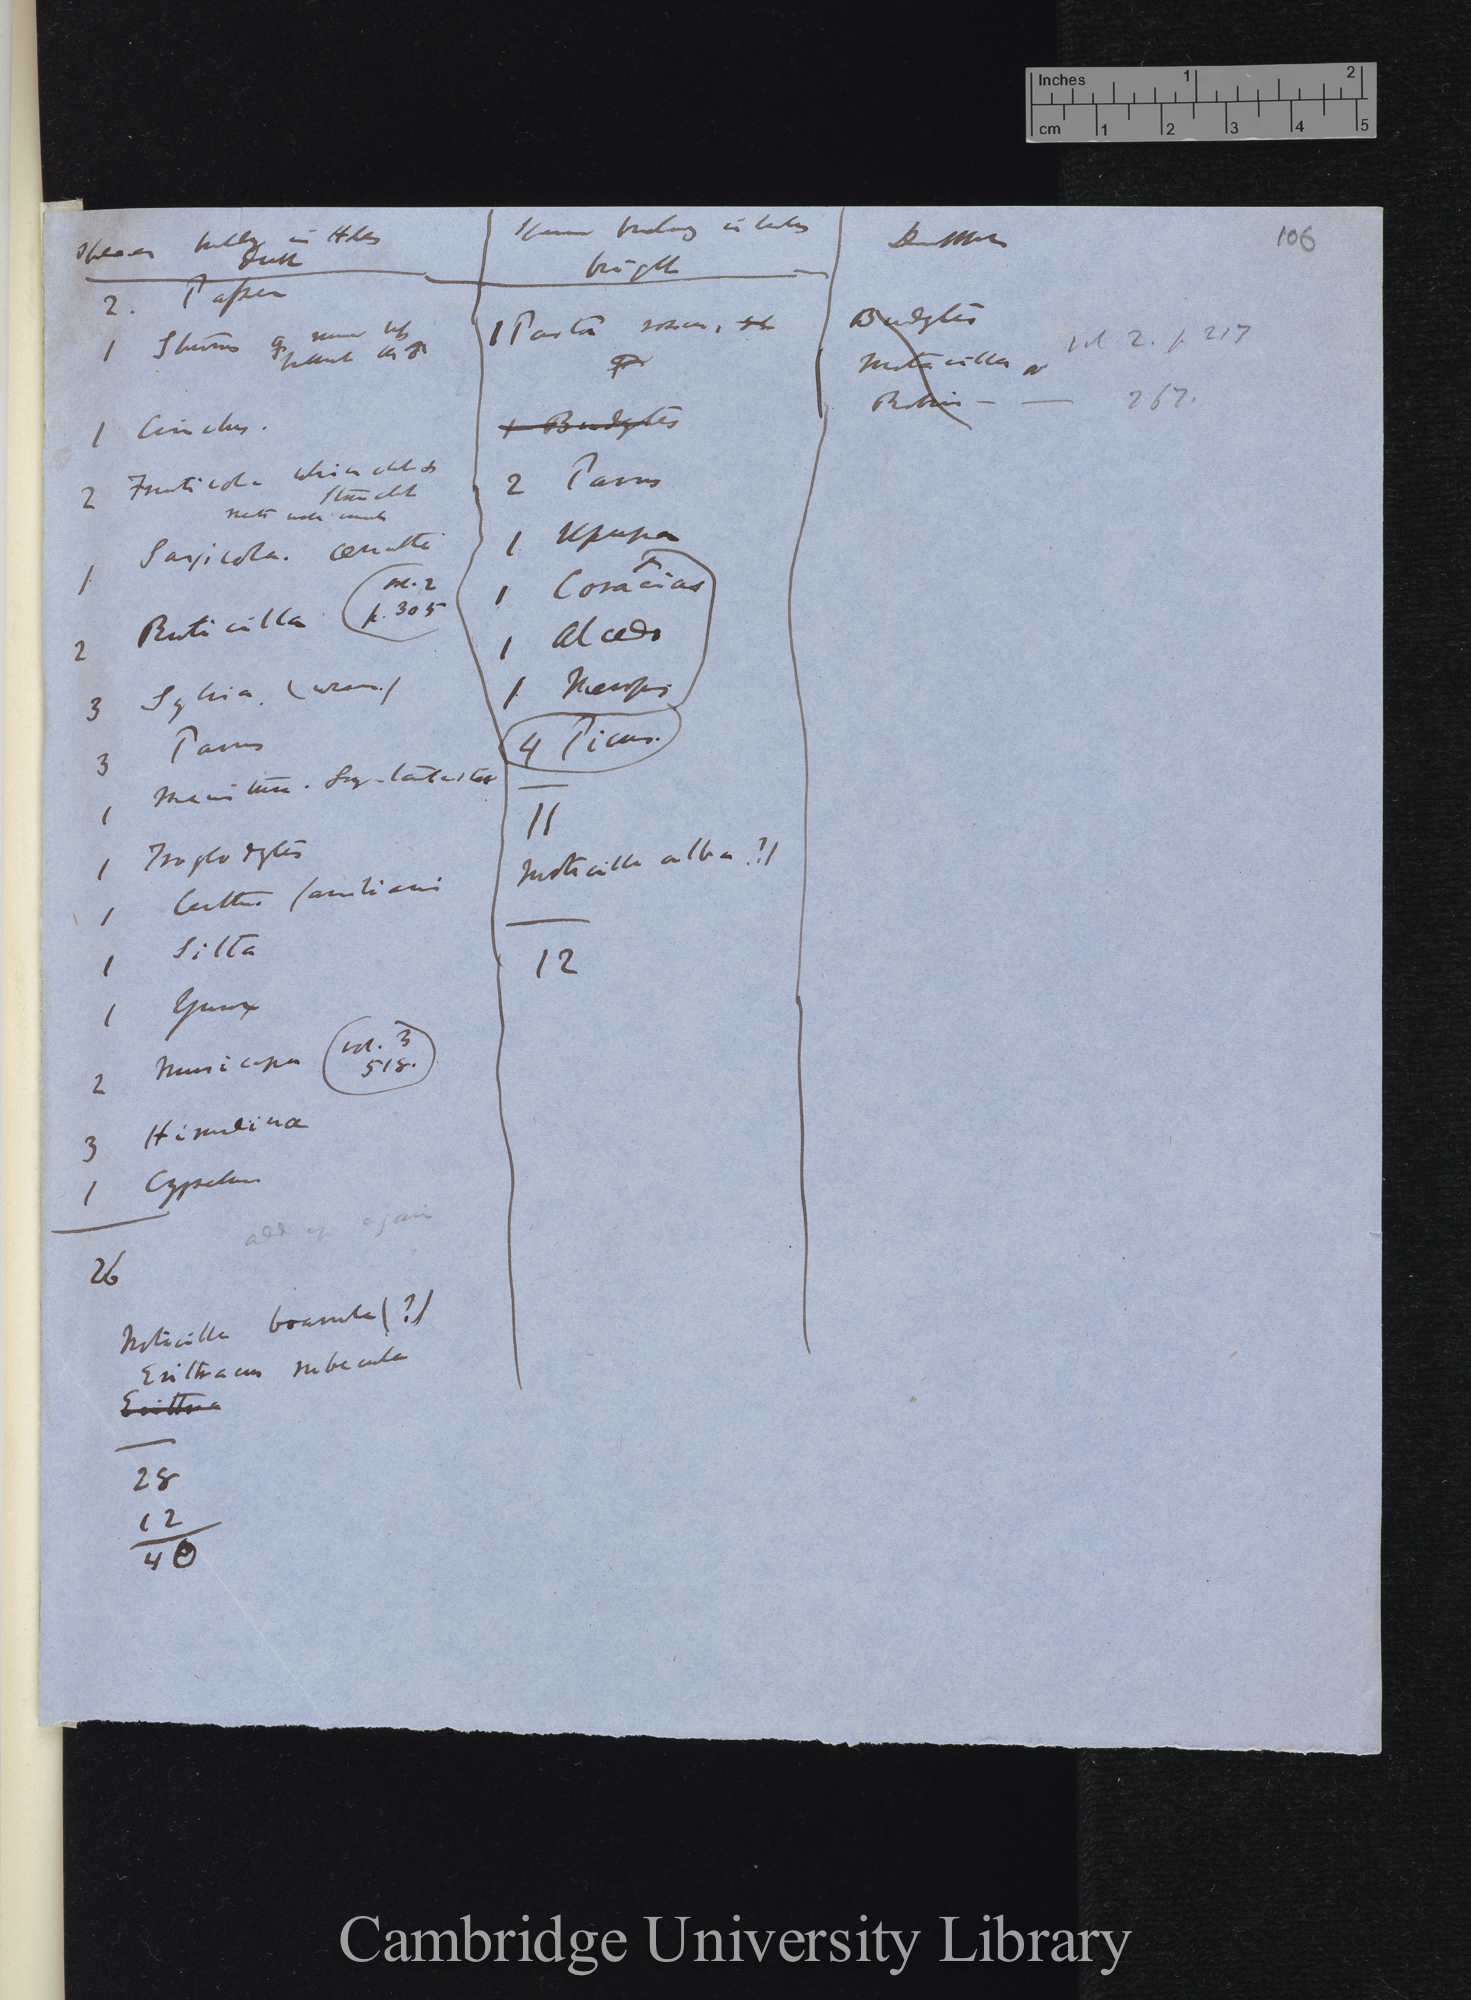 Inches 1 2
cm 1 2 3 4 5
106
building in Holes
dull
2. Passer
1 Sturnus
1 Cinclus.
2 Fruticola whinchat &
Stonechat
1 Saxicola. œnanthe
2 Ruticilla vol. 2
p. 305
3 Sylvia. (wren)
3 Parus
1
1 Troglodytes
1 Certhia familiaris
1 Sitta
1 Yunx
2 Muscicapa vol. 3
518.
3 Hirundinæ
1 Cypselus
add up again
26
Motacilla boarula (?)
Erithacus rubecula
Erithra
28
12
40
building in holes
bright
1 Pastor rosea,
♀
1 Budytes
2 Parus
1 Upupa
1 Coracias
1 Alcedo
1 Merops
4 Picus.
11
Motacilla alba?)
12
Doubtful
Budytes
Motacilla vol 2. p 217
Robin — — 267.
Cambridge University Library